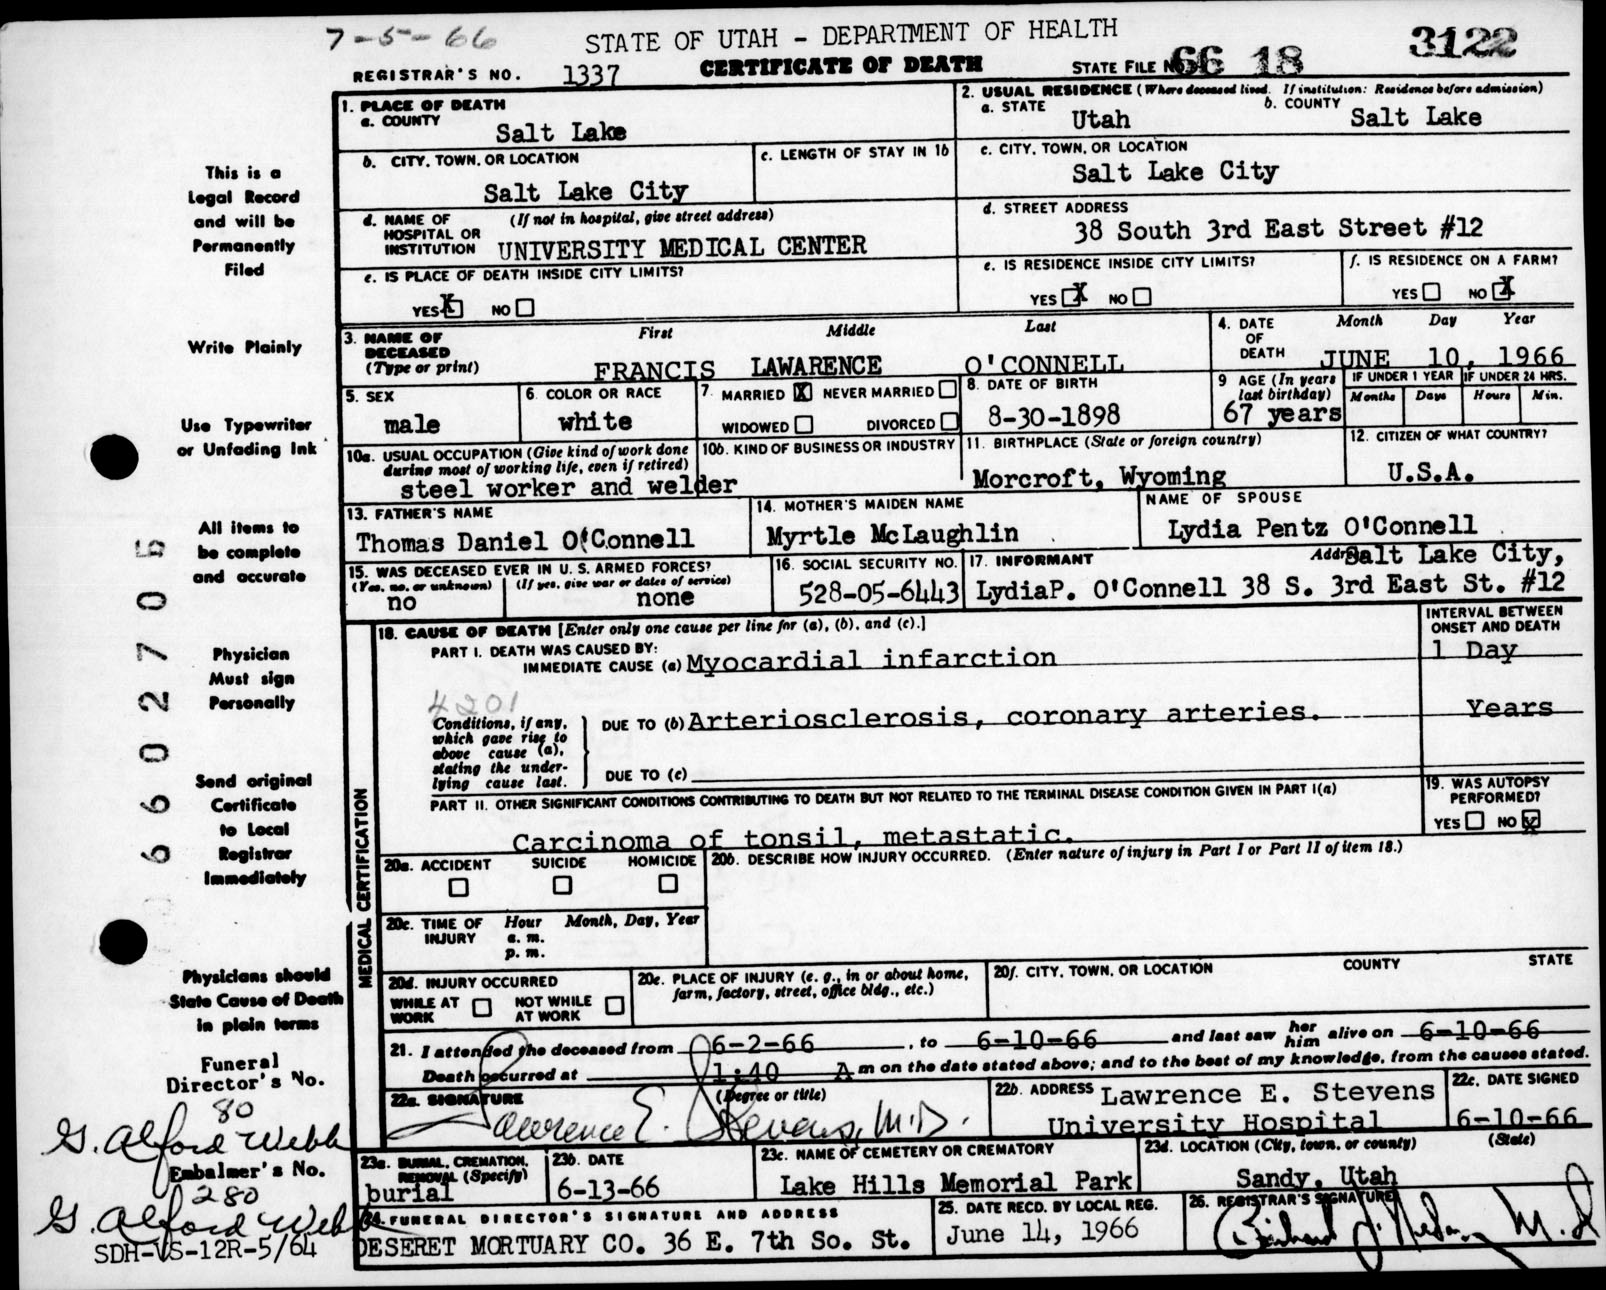 7-5-66
STATE OF UTAH - DEPARTMENT OF HEALTH
3122
REGISTRAR'S NO. 1337
CERTIFICATE OF DEATH
STATE FILE NO. 66 18
1. PLACE OF DEATH
a. COUNTY
Salt Lake
2. USUAL RESIDENCE (Where deceased lived. If institution: Residence before admission)
a. STATE
Utah
b. COUNTY
Salt Lake
b. CITY, TOWN, OR LOCATION
Salt Lake City
c. LENGTH OF STAY IN 1b
c. CITY, TOWN, OR LOCATION
Salt Lake City
d. NAME OF HOSPITAL OR INSTITUTION
(If not in hospital, give street address)
UNIVERSITY MEDICAL CENTER
d. STREET ADDRESS
38 South 3rd East Street #12
e. IS PLACE OF DEATH INSIDE CITY LIMITS?
YES X NO
e. IS RESIDENCE INSIDE CITY LIMITS?
YES X NO
f. IS RESIDENCE ON A FARM?
YES NO X
3. NAME OF DECEASED
(Type or print)
First Middle Last
FRANCIS LAWARENCE O'CONNELL
4. DATE OF DEATH
Month Day Year
JUNE 10, 1966
5. SEX
male
6. COLOR OR RACE
white
7. MARRIED X NEVER MARRIED
WIDOWED DIVORCED
8. DATE OF BIRTH
8-30-1898
9 AGE (In years last birthday)
67 years
IF UNDER 1 YEAR
Months Days
IF UNDER 24 HRS.
Hours Min.
10a. USUAL OCCUPATION (Give kind of work done during most of working life, even if retired)
steel worker and welder
10b. KIND OF BUSINESS OR INDUSTRY
11. BIRTHPLACE (State or foreign country)
Morcroft, Wyoming
12. CITIZEN OF WHAT COUNTRY?
U.S.A.
13. FATHER'S NAME
Thomas Daniel O'Connell
14. MOTHER'S MAIDEN NAME
Myrtle McLaughlin
NAME OF SPOUSE
Lydia Pentz O'Connell
15. WAS DECEASED EVER IN U. S. ARMED FORCES?
(Yes, no, or unknown) (If yes, give war or dates of service)
no none
16. SOCIAL SECURITY NO.
528-05-6443
17. INFORMANT
Address
Salt Lake City,
LydiaP. O'Connell 38 S. 3rd East St. #12
MEDICAL CERTIFICATION
18. CAUSE OF DEATH [Enter only one cause per line for (a), (b), and (c).]
INTERVAL BETWEEN ONSET AND DEATH
PART I. DEATH WAS CAUSED BY:
IMMEDIATE CAUSE (a) Myocardial infarction
1 Day
4201
Conditions, if any, which gave rise to above cause (a), stating the underlying cause last.
DUE TO (b) Arteriosclerosis, coronary arteries.
Years
DUE TO (c)
PART II. OTHER SIGNIFICANT CONDITIONS CONTRIBUTING TO DEATH BUT NOT RELATED TO THE TERMINAL DISEASE CONDITION GIVEN IN PART I(a)
Carcinoma of tonsil, metastatic.
19. WAS AUTOPSY PERFORMED?
YES NO X
20a. ACCIDENT SUICIDE HOMICIDE
20b. DESCRIBE HOW INJURY OCCURRED. (Enter nature of injury in Part I or Part II of item 18.)
20c. TIME OF INJURY
Hour Month, Day, Year
a. m.
p. m.
20d. INJURY OCCURRED
WHILE AT WORK NOT WHILE AT WORK
20e. PLACE OF INJURY (e. g., in or about home, farm, factory, street, office bldg., etc.)
20f. CITY, TOWN, OR LOCATION COUNTY STATE
21. I attended the deceased from 6-2-66, to 6-10-66 and last saw her him alive on 6-10-66
Death occurred at 1:40 A m on the date stated above; and to the best of my knowledge, from the causes stated.
22a. SIGNATURE (Degree or title)
Lawrence E. Stevens, M.D.
22b. ADDRESS Lawrence E. Stevens
University Hospital
22c. DATE SIGNED
6-10-66
23a. BURIAL, CREMATION, REMOVAL (Specify)
burial
23b. DATE
6-13-66
23c. NAME OF CEMETERY OR CREMATORY
Lake Hills Memorial Park
23d. LOCATION (City, town, or county) (State)
Sandy, Utah
24. FUNERAL DIRECTOR'S SIGNATURE AND ADDRESS
DESERET MORTUARY CO. 36 E. 7th So. St.
25. DATE RECD. BY LOCAL REG.
June 14, 1966
26. REGISTRAR'S SIGNATURE
M.D
This is a
Legal Record
and will be
Permanently
Filed
Write Plainly
Use Typewriter
or Unfading Ink
All items to
be complete
and accurate
Physician
Must sign
Personally
Send original
Certificate
to Local
Registrar
Immediately
Physicians should
State Cause of Death
in plain terms
Funeral
Director's No.
80
G. Alford Webb
Embalmer's No.
280
G. Alford Webb
SDH-VS-12R-5/64
6602705